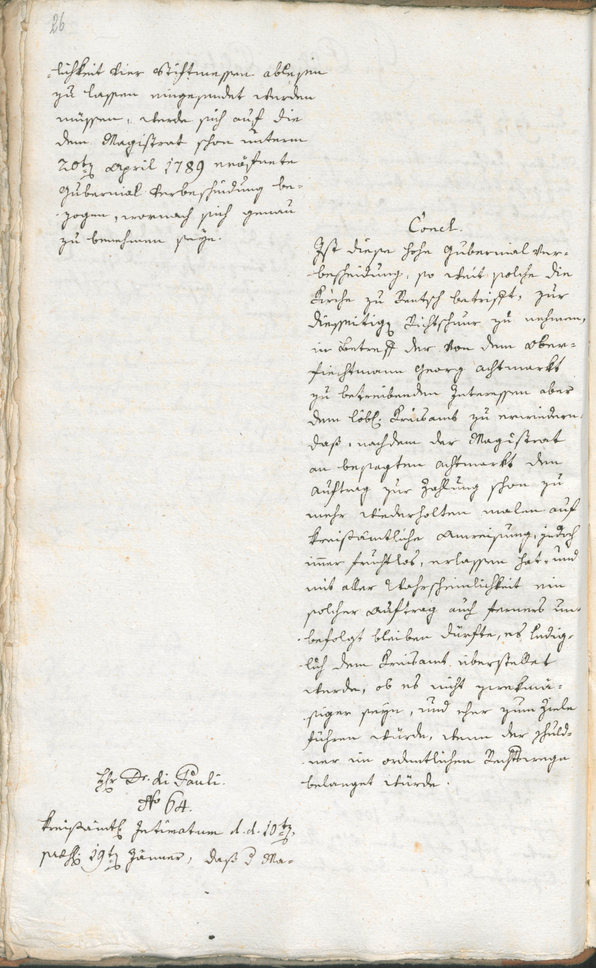 26
-lichkeit vier Stiftmessen ablesen
zu lassen eingesendet werden
müssen, werde sich auf die
dem Magistrat schon unterm
20ten April 1789 eröfnete
Gubernial Verbescheidung be-
zogen, wornach sich genau
zu benehmen seye.
Concl.
Ist diese hohe Gubernial Ver-
bescheidung, so weit solche die
Kirche zu Rentsch betrifft, zur
diesseitigen Richtschnur zu nehmen,
in Betreff der von dem Ober-
Georg Achtmarkt
zu betreibenden Interessen aber
dem löbl. Kreisamt zu erwiedern
daß, nachdem der Magistrat
an besagten Achtmarkt den
Auftrag zur Zahlung schon zu
mehr wiederholten malen auf
kreisämtliche Anweisung, jedoch
immer fruchtlos, erlassen hat, und
mit aller Wahrscheinlichkeit ein
solcher Auftrag auch ferners un-
befolgt bleiben dürfte, es ledig-
lich dem Kreisamt überstellet
werde, ob es nicht zwekmä-
siger seye, und eher zum Ziele
führen würde, wenn der Schuld-
ner im ordentlichen Rechtswege
belanget würde.
Hr Dr. di Pauli.
No 64.
Kreisämtl. Intimatum d. d. 10ten,
praes. 19ten Jänner, daß d Ma-